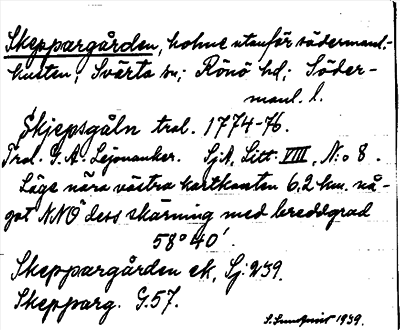 Skeppargården, holme utanför södermanl.-
kusten, Svärta sn; Rönö hd; Söder-
manl. l.
Skjepsgåln tral. 1774-76.
Tral. G. A. Lejonanker. SjA, Litt. VIII, N:o 8.
Läge nära västra kartkanten 6,2 km. nå-
got NNO dess skärning med breddgrad
58° 40'.
Skeppargården ek, Sj: 239.
Skepparg. G.57.
S. Sundqvist 1939.